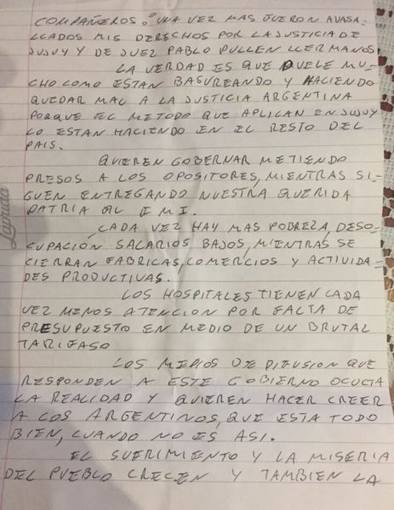 COMPAÑEROS: UNA VEZ MAS FUERON AVASA-
LLADOS MIS DERECHOS POR LA JUSTICIA DE
JUJUY Y DE JUEZ PABLO PULLEN LLERMANOS
LA VERDAD ES QUE DUELE MU-
CHO COMO ESTAN BASUREANDO Y HACIENDO
QUEDAR MAL A LA JUSTICIA ARGENTINA
PORQUE EL METODO QUE APLICAN EN JUJUY
LO ESTAN HACIENDO EN EL RESTO DEL
PAIS.
QUIEREN GOBERNAR METIENDO
PRESOS A LOS OPOSITORES, MIENTRAS SI-
GUEN ENTREGANDO NUESTRA QUERIDA
PATRIA AL FMI.
CADA VEZ HAY MAS POBREZA, DESO-
CUPACIÓN SALARIOS BAJOS, MIENTRAS SE
CIERRAN FABRICAS, COMERCIOS Y ACTIVIDA-
DES PRODUCTIVAS.
LOS HOSPITALES TIENEN CADA
VEZ MENOS ATENCION POR FALTA DE
PRESUPUESTO EN MEDIO DE UN BRUTAL
TARIFASO
LOS MEDIOS DE DIFUSION QUE
RESPONDEN A ESTE GOBIERNO OCULTA
LA REALIDAD Y QUIEREN HACER CREER
A LOS ARGENTINOS, QUE ESTA TODO
BIEN, CUANDO NO ES ASI.
EL SUFRIMIENTO Y LA MISERIA
DEL PUEBLO CRECEN Y TAMBIEN LA